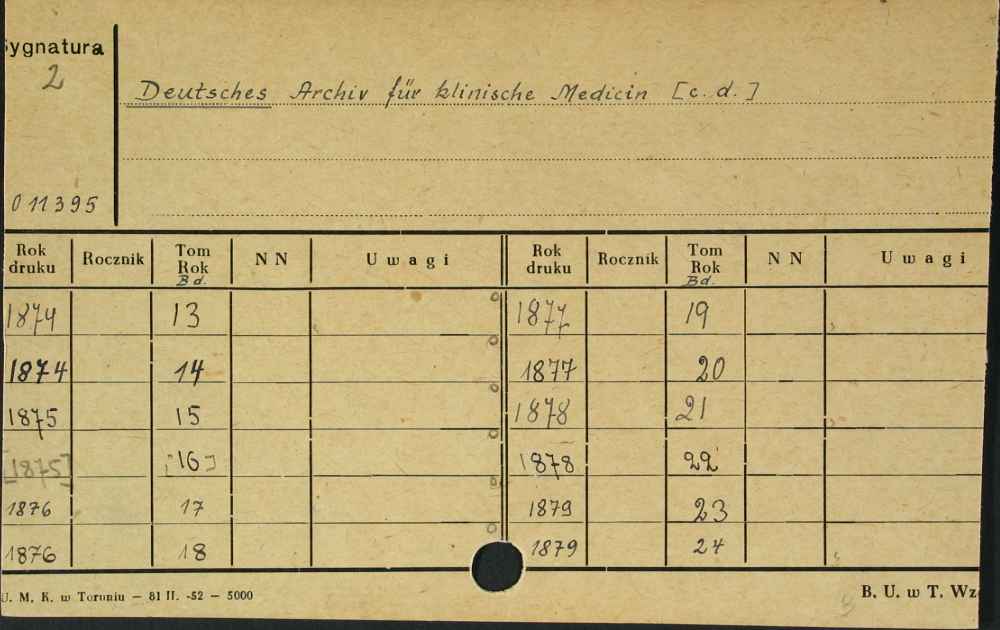 Sygnatura
2
Deutsches Archiv für klinische Medicin [c. d.]
011395
Rok druku Rocznik Tom Rok Bd. NN Uwagi Rok druku Rocznik Tom Rok Bd. NN Uwagi
1874 13 1877 19
1874 14 1877 20
1875 15 1878 21
[1875] [16] 1878 22
1876 17 1879 23
1876 18 1879 24
U. M. K. w Toruniu — 81 II. -52 — 5000
B. U. w T. Wz